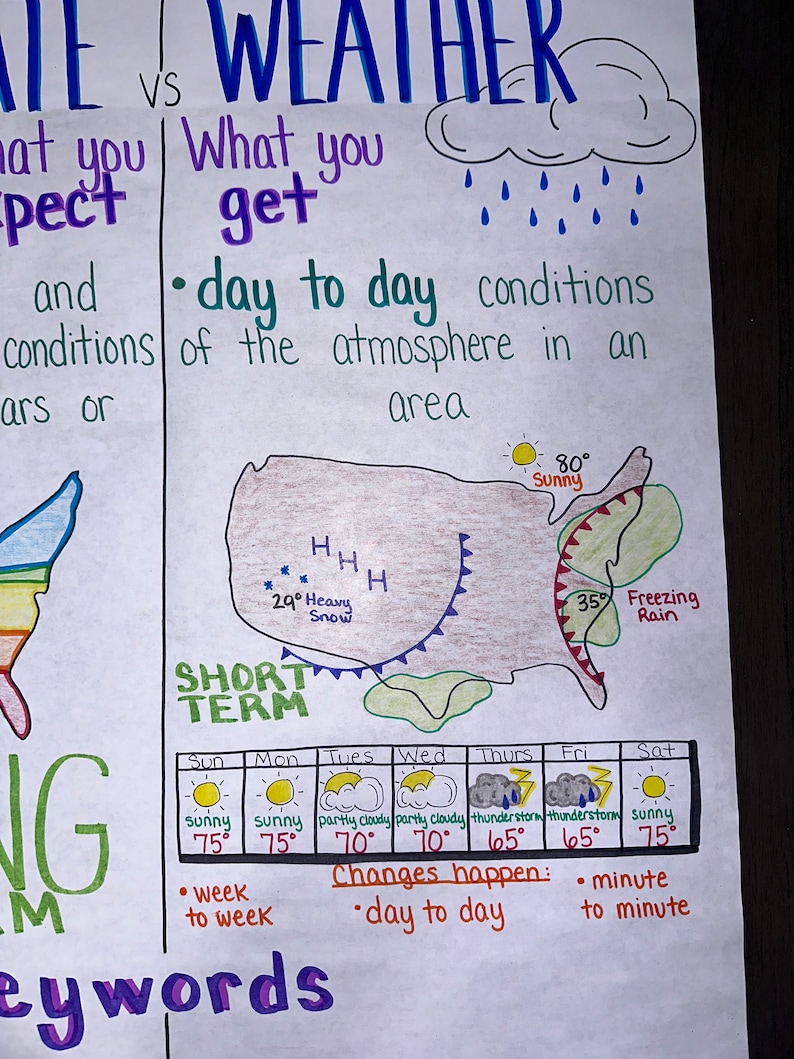 VS WEATHER
you
What you
get
and
conditions
or
• day to day conditions
of the atmosphere in an
area
80°
Sunny
H H H
29° Heavy
Snow
35° Freezing
Rain
SHORT
TERM
Sun Mon Tues Wed Thurs Fri Sat
sunny sunny partly cloudy partly cloudy thunderstorm thunderstorm sunny
75° 75° 70° 70° 65° 65° 75°
Changes happen:
• week
to week
• day to day
• minute
to minute
eywords